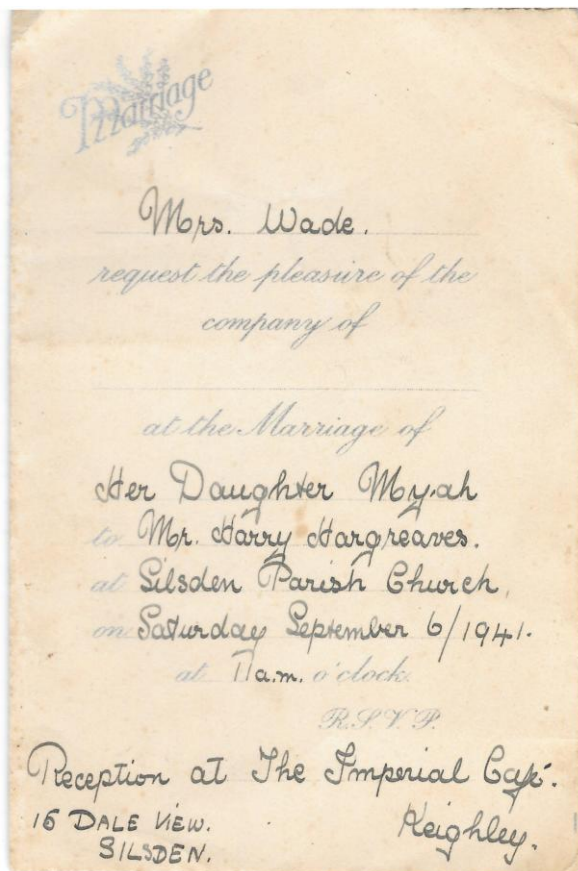 Marriage
Mrs. Wade.
request the pleasure of the
company of
at the Marriage of
Her Daughter Myah
to Mr. Harry Hargreaves.
at Silsden Parish Church,
on Saturday September 6/1941.
at 11 a.m. o'clock.
R.S.V.P.
Reception at The Imperial Café.
Keighley.
16 DALE VIEW.
SILSDEN.